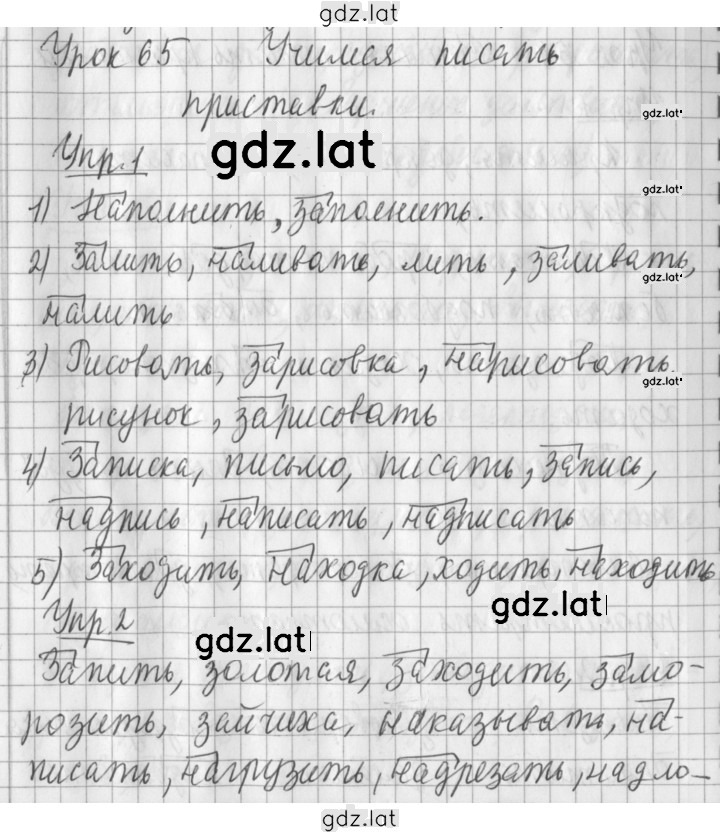 gdz.lat
Урок 65 Учимся писать
приставки.
gdz.lat
Упр.1
gdz.lat
gdz.lat
1) Наполнить, заполнить.
2) Залить, наливать, лить, заливать,
gdz.lat
налить
3) Рисовать, зарисовка, нарисовать
gdz.lat
рисунок, зарисовать
4) Записка, письмо, писать, запись,
надпись, написать, надписать
5) Заходить, находка, ходить, находить
Упр.2
gdz.lat
gdz.lat
Запить, золотая, заходить, замо-
розить, зайчиха, наказывать, на-
писать, нагрузить, надрезать, надло-
gdz.lat